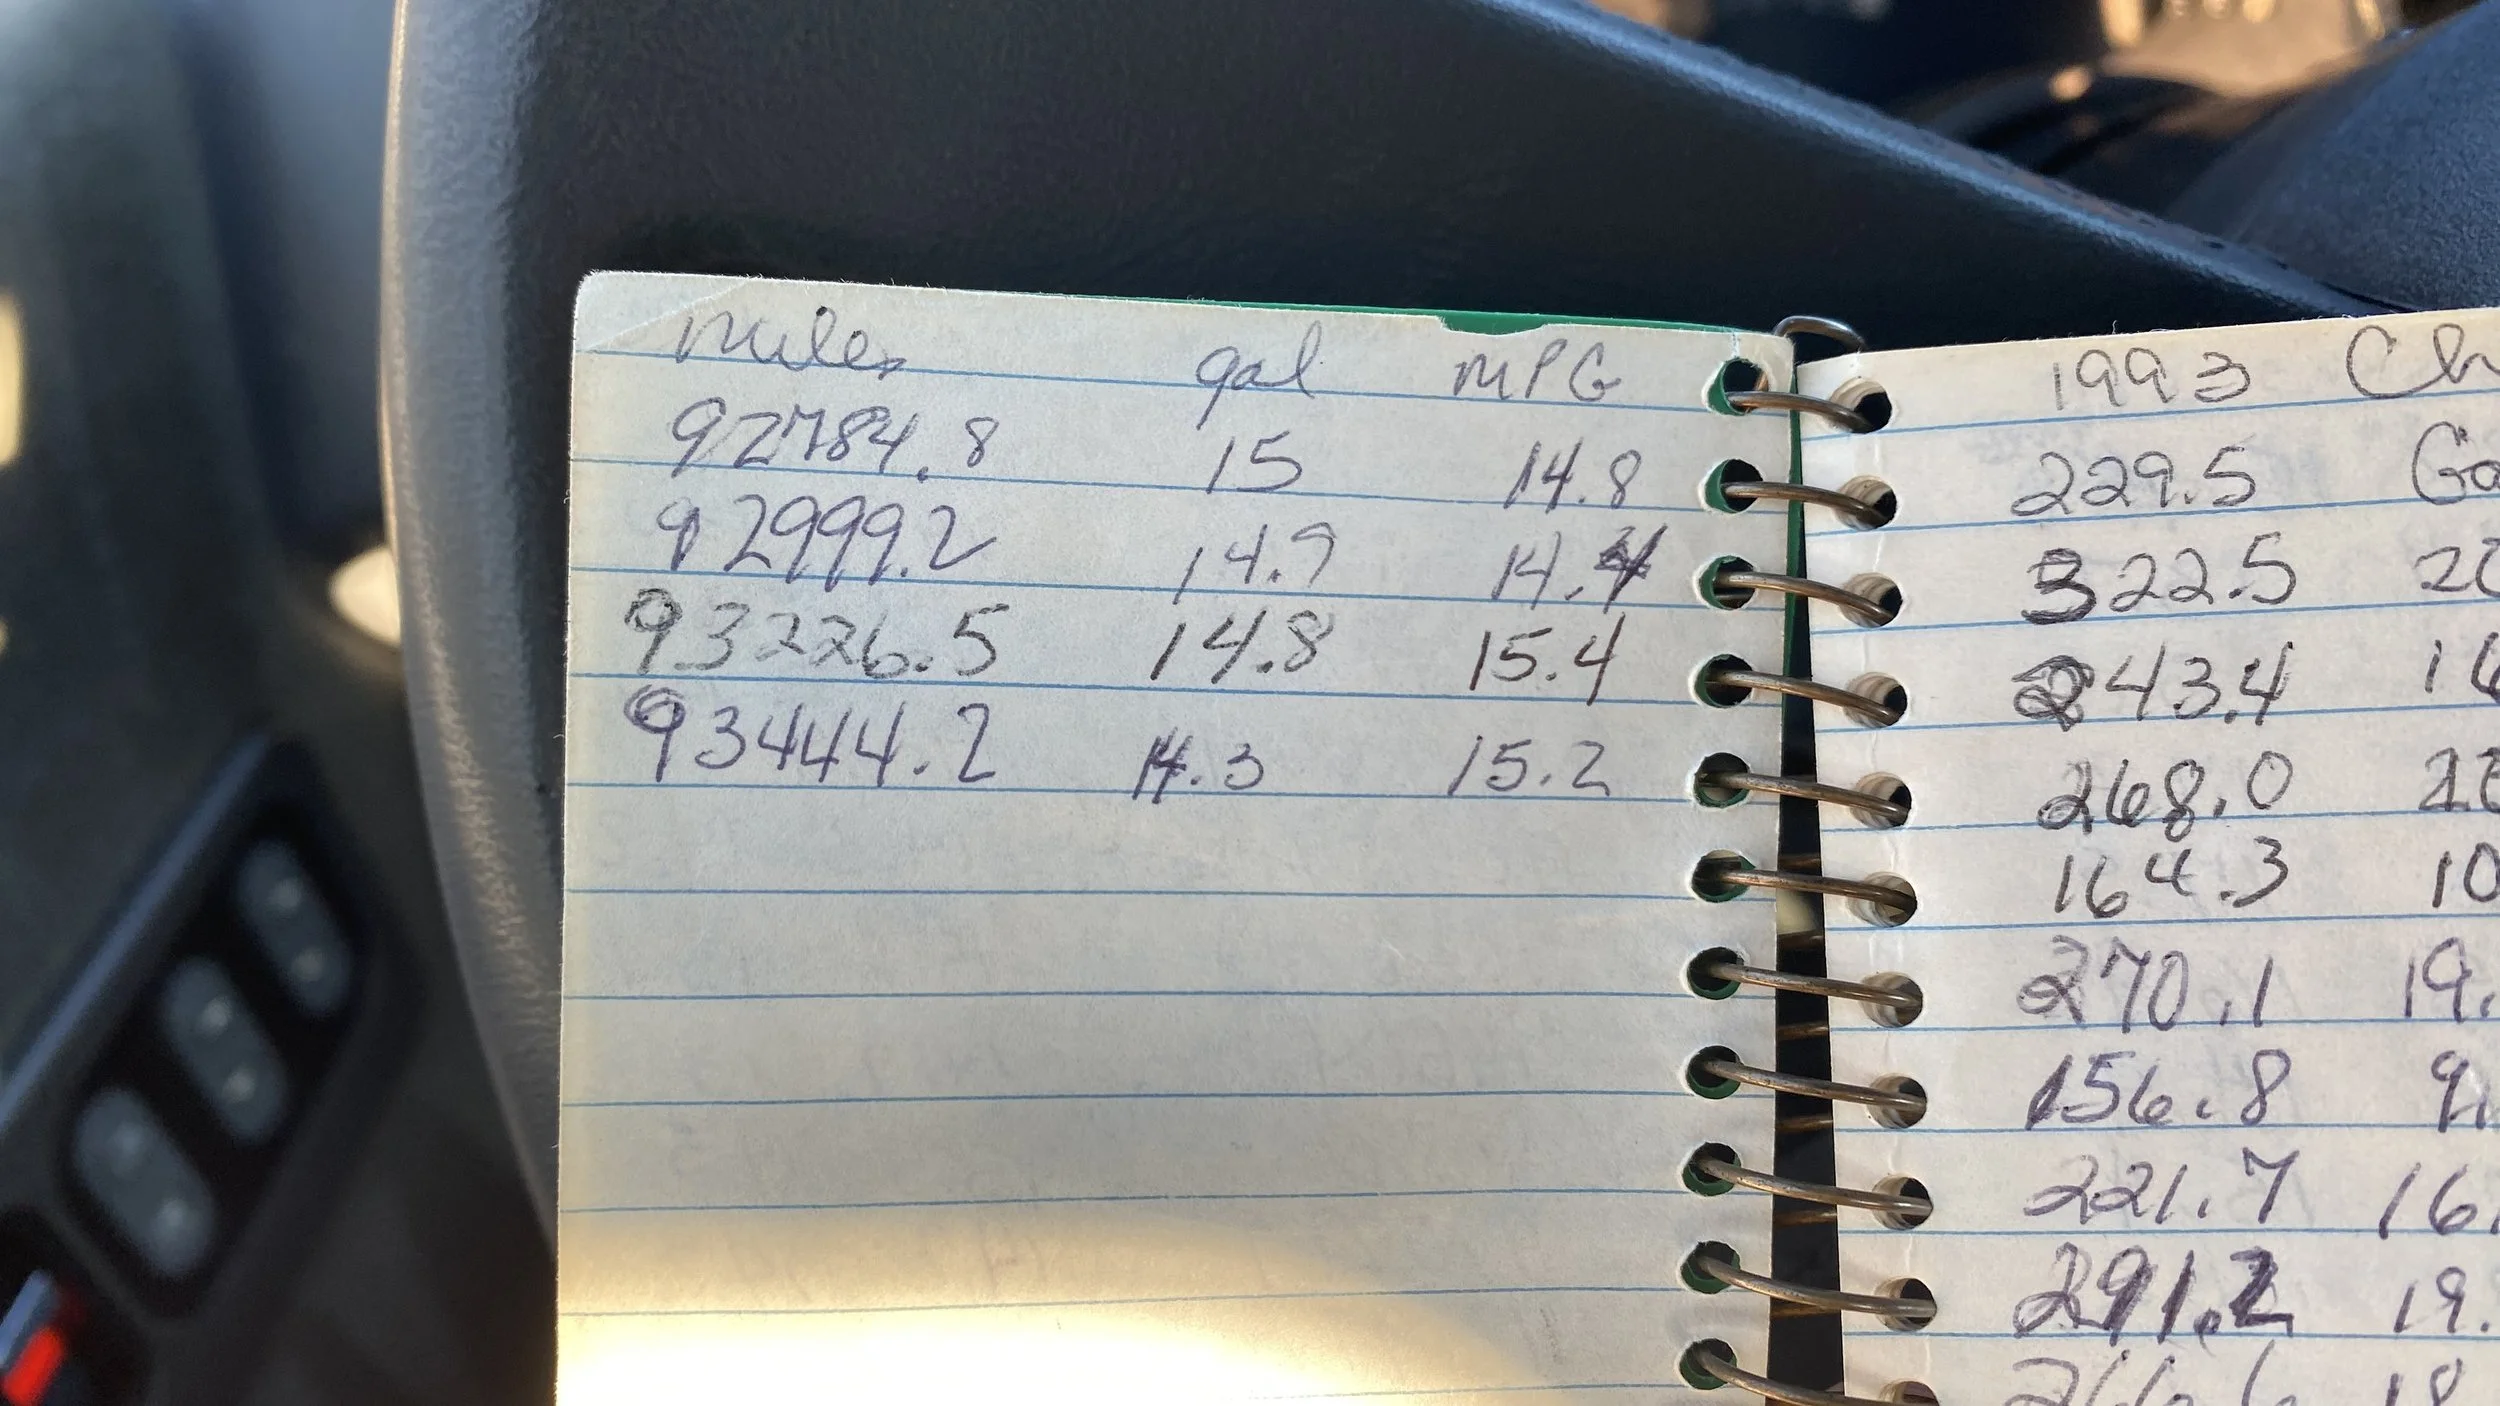 miles gal MPG
92784.8 15 14.8
92999.2 14.9 14.4
93226.5 14.8 15.4
93444.2 14.3 15.2
1993 Ch
229.5 Ga
322.5 20
243.4 16
268.0
164.3 10
270.1 19.
156.8 9.
221.7 16.
291.2 19.
266.6 18